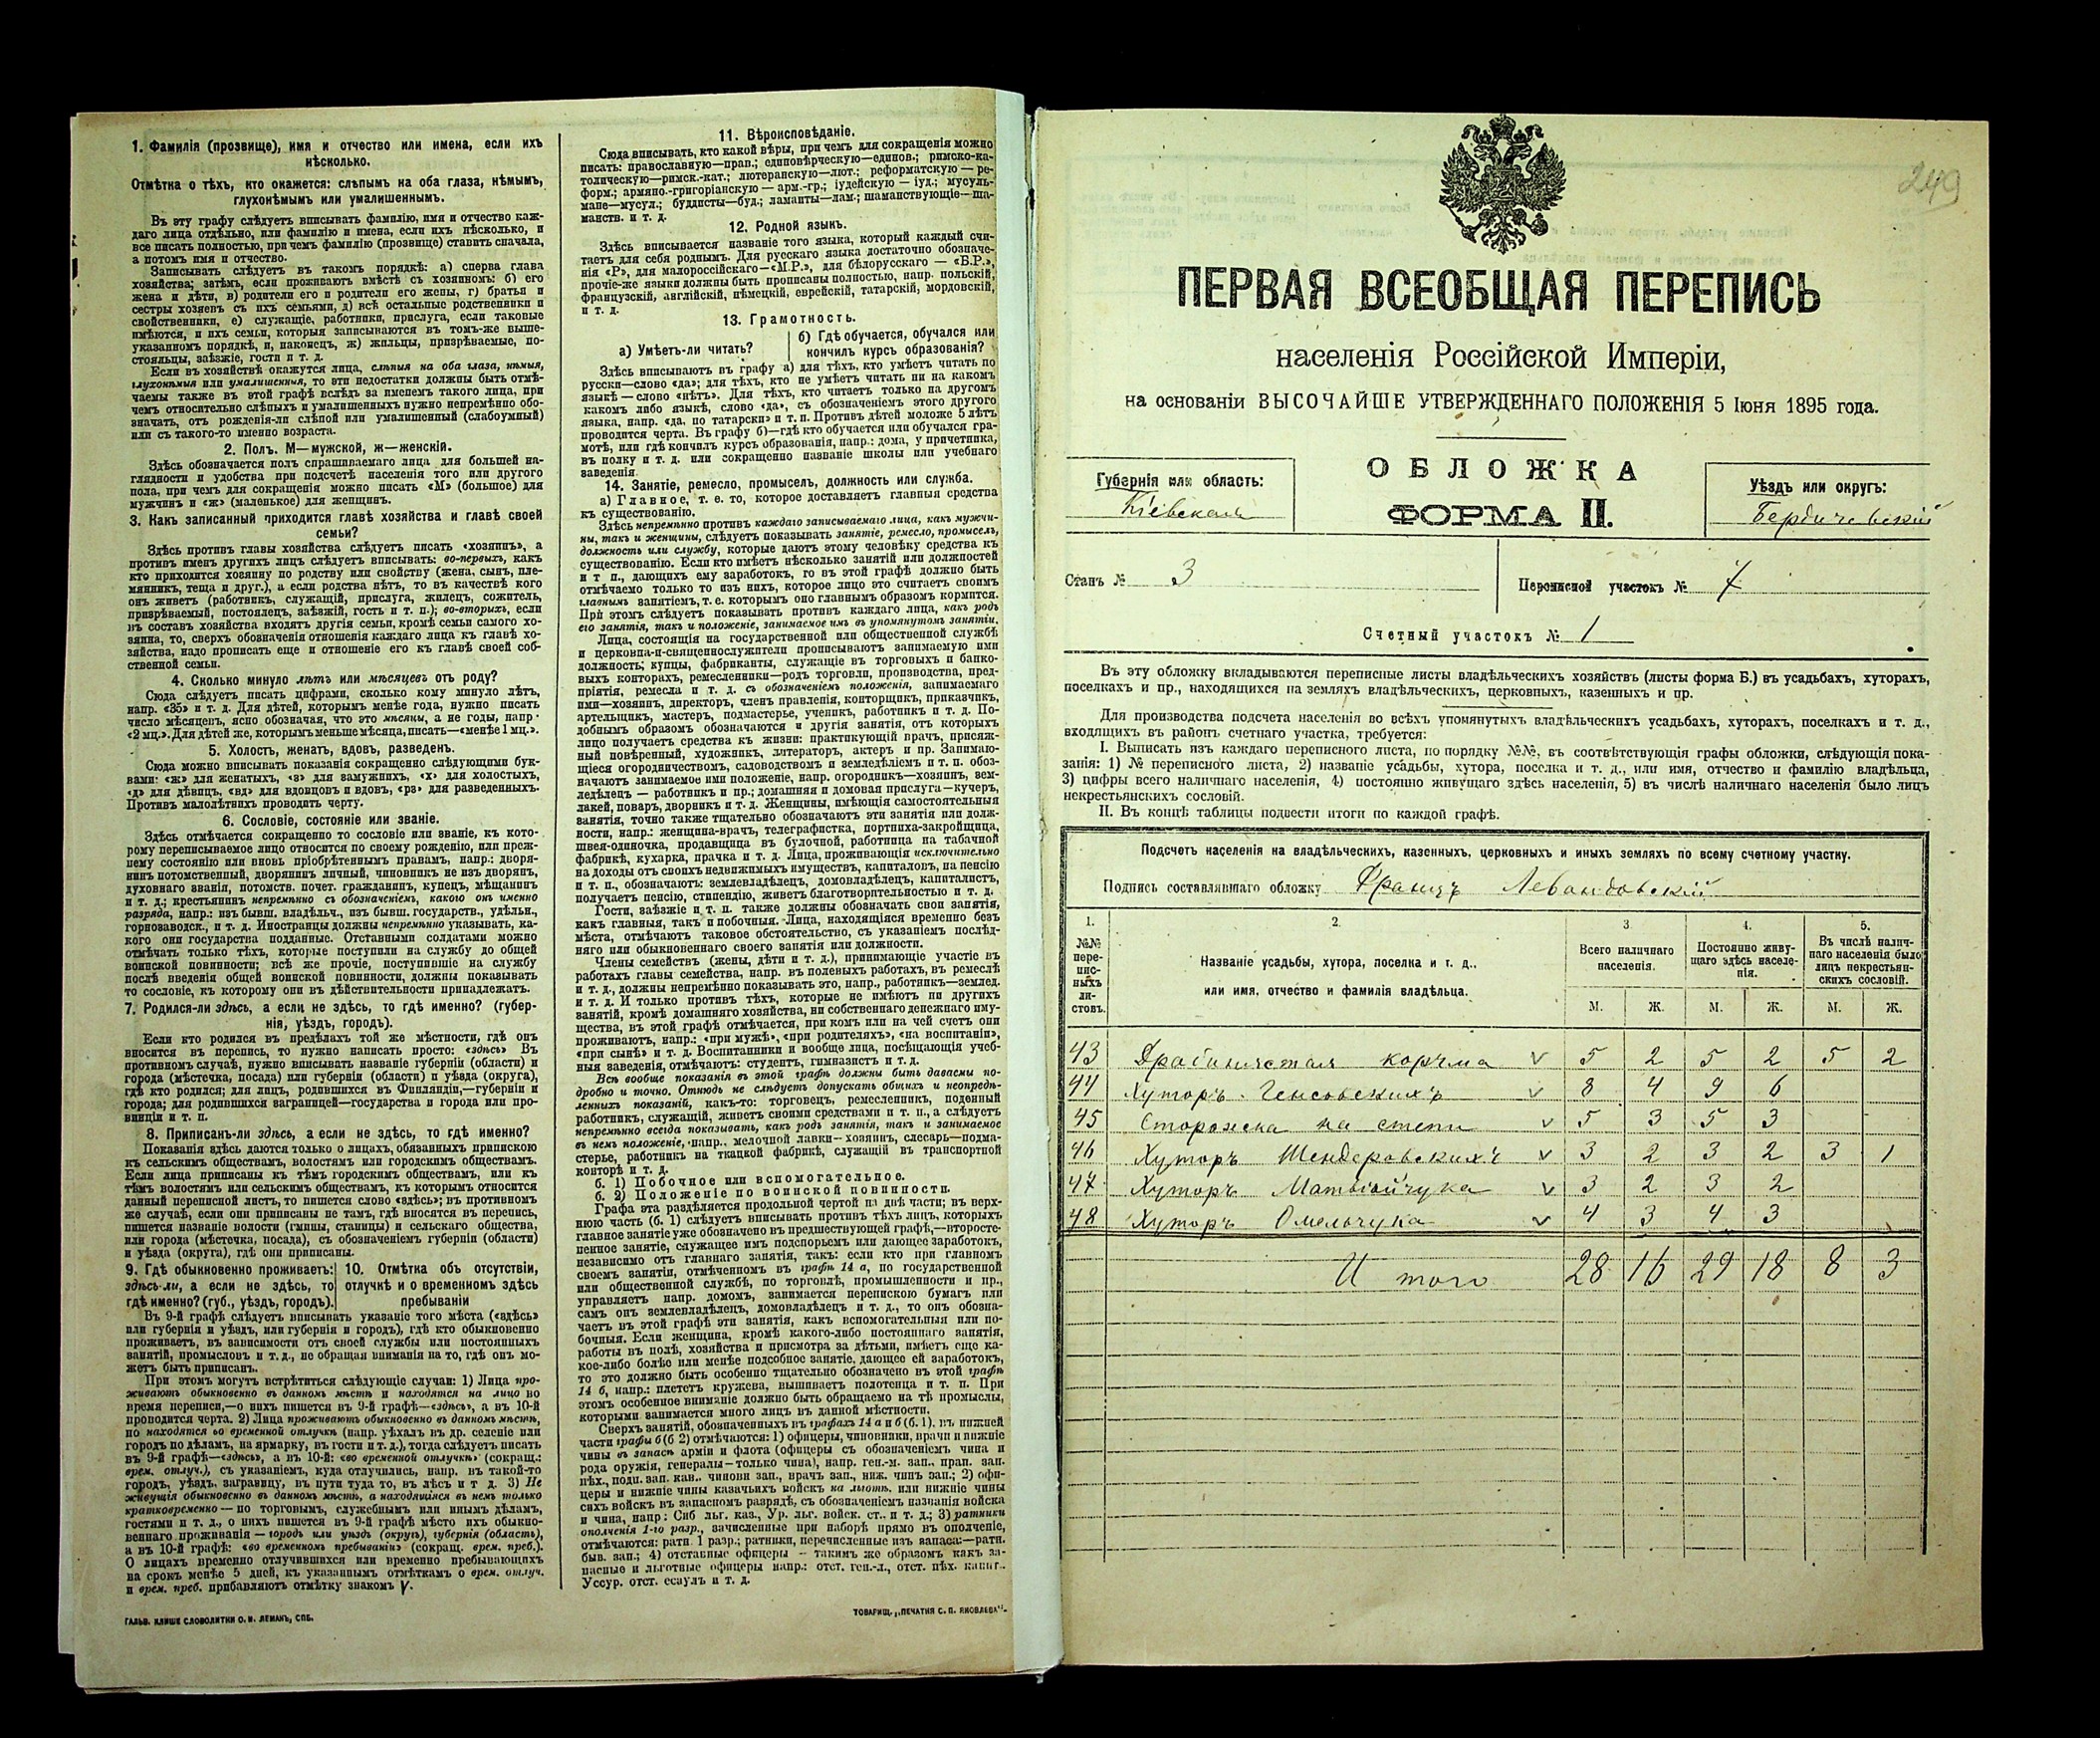 1. Фамилія (прозвище), имя и отчество или имена, если ихъ
нѣсколько.
Отмѣтка о тѣхъ, кто окажется: слѣпымъ на оба глаза, нѣмымъ,
глухонѣмымъ или умалишеннымъ.
Въ эту графу слѣдуетъ вписывать фамилію, имя и отчество каж-
даго лица отдѣльно, или фамилію и имена, если ихъ нѣсколько, и
все писать полностью, при чемъ фамилію (прозвище) ставить сначала,
а потомъ имя и отчество.
Записывать слѣдуетъ въ такомъ порядкѣ: а) сперва глава
хозяйства; затѣмъ, если проживаютъ вмѣстѣ съ хозяиномъ: б) его
жена и дѣти, в) родители его и родители его жены, г) братья и
сестры хозяевъ съ ихъ семьями, д) всѣ остальные родственники и
свойственники, е) служащіе, работники, прислуга, если таковые
имѣются, и ихъ семьи, которыя записываются въ томъ-же выше-
указанномъ порядкѣ, и, наконецъ, ж) жильцы, призрѣваемые, по-
стояльцы, заѣзжіе, гости и т. д.
Если въ хозяйствѣ окажутся лица, слѣпыя на оба глаза, нѣмыя,
глухонѣмыя или умалишенныя, то эти недостатки должны быть отмѣ-
чаемы также въ этой графѣ вслѣдъ за именемъ такого лица, при
чемъ относительно слѣпыхъ и умалишенныхъ нужно непремѣнно обо-
значать, отъ рожденія-ли слѣпой или умалишенный (слабоумный)
или съ такого-то именно возраста.
2. Полъ. М—мужской, ж—женскій.
Здѣсь обозначается полъ спрашиваемаго лица для большей на-
глядности и удобства при подсчетѣ населенія того или другого
пола, при чемъ для сокращенія можно писать «М» (большое) для
мужчинъ и «ж» (маленькое) для женщинъ.
3. Какъ записанный приходится главѣ хозяйства и главѣ своей
семьи?
Здѣсь противъ главы хозяйства слѣдуетъ писать «хозяинъ», а
противъ именъ другихъ лицъ слѣдуетъ вписывать: во-первыхъ, какъ
кто приходится хозяину по родству или свойству (жена, сынъ, пле-
мянникъ, теща и друг.), а если родства нѣтъ, то въ качествѣ кого
онъ живетъ (работникъ, служащій, прислуга, жилецъ, сожитель,
призрѣваемый, постоялецъ, заѣзжій, гость и т. п.); во-вторыхъ, если
въ составъ хозяйства входятъ другія семьи, кромѣ семьи самого хо-
зяина, то, сверхъ обозначенія отношенія каждаго лица къ главѣ хо-
зяйства, надо прописать еще и отношеніе его къ главѣ своей соб-
ственной семьи.
4. Сколько минуло лѣтъ или мѣсяцевъ отъ роду?
Сюда слѣдуетъ писать цифрами, сколько кому минуло лѣтъ,
напр. «35» и т. д. Для дѣтей, которымъ менѣе года, нужно писать
число мѣсяцевъ, ясно обозначая, что это мѣсяцы, а не годы, напр.
«2 мц.». Для дѣтей же, которымъ меньше мѣсяца, писать—«менѣе 1 мц.».
5. Холостъ, женатъ, вдовъ, разведенъ.
Сюда можно вписывать показанія сокращенно слѣдующими бук-
вами: «ж» для женатыхъ, «з» для замужнихъ, «х» для холостыхъ,
«д» для дѣвицъ, «вд» для вдовцовъ и вдовъ, «рз» для разведенныхъ.
Противъ малолѣтнихъ проводить черту.
6. Сословіе, состояніе или званіе.
Здѣсь отмѣчается сокращенно то сословіе или званіе, къ кото-
рому переписываемое лицо относится по своему рожденію, или преж-
нему состоянію или вновь пріобрѣтеннымъ правамъ, напр.: дворя-
нинъ потомственный, дворянинъ личный, чиновникъ не изъ дворянъ,
духовнаго званія, потомств. почет. гражданинъ, купецъ, мѣщанинъ
и т. д.; крестьянинъ непремѣнно съ обозначеніемъ, какого онъ именно
разряда, напр.: изъ бывш. владѣльч., изъ бывш. государств., удѣльн.,
горнозаводск., и т. д. Иностранцы должны непремѣнно указывать, ка-
кого они государства подданные. Отставными солдатами можно
отмѣчать только тѣхъ, которые поступили на службу до общей
воинской повинности; всѣ же прочіе, поступившіе на службу
послѣ введенія общей воинской повинности, должны показывать
то сословіе, къ которому они въ дѣйствительности принадлежатъ.
7. Родился-ли здѣсь, а если не здѣсь, то гдѣ именно? (губер-
нія, уѣздъ, городъ).
Если кто родился въ предѣлахъ той же мѣстности, гдѣ онъ
вносится въ перепись, то нужно написать просто: «здѣсь» Въ
противномъ случаѣ, нужно вписывать названіе губерніи (области) и
города (мѣстечка, посада) или губерніи (области) и уѣзда (округа),
гдѣ кто родился; для лицъ, родившихся въ Финляндіи,—губерніи и
города; для родившихся заграницей—государства и города или про-
винціи и т. п.
8. Приписанъ-ли здѣсь, а если не здѣсь, то гдѣ именно?
Показанія здѣсь даются только о лицахъ, обязанныхъ припискою
къ сельскимъ обществамъ, волостямъ или городскимъ обществамъ.
Если лица приписаны къ тѣмъ городскимъ обществамъ, или къ
тѣмъ волостямъ или сельскимъ обществамъ, къ которымъ относится
данный переписной листъ, то пишется слово «здѣсь»; въ противномъ
же случаѣ, если они приписаны не тамъ, гдѣ вносятся въ перепись,
пишется названіе волости (гмины, станицы) и сельскаго общества,
или города (мѣстечка, посада), съ обозначеніемъ губерніи (области)
и уѣзда (округа), гдѣ они приписаны.
9. Гдѣ обыкновенно проживаетъ:
здѣсь-ли, а если не здѣсь, то
гдѣ именно? (губ., уѣздъ, городъ).
10. Отмѣтка объ отсутствіи,
отлучкѣ и о временномъ здѣсь
пребываніи
Въ 9-й графѣ слѣдуетъ вписывать указаніе того мѣста («здѣсь»
или губернія и уѣздъ, или губернія и городъ), гдѣ кто обыкновенно
проживаетъ, въ зависимости отъ своей службы или постоянныхъ
занятій, промысловъ и т. д., не обращая вниманія на то, гдѣ онъ мо-
жетъ быть приписанъ.
При этомъ могутъ встрѣтиться слѣдующіе случаи: 1) Лица про-
живаютъ обыкновенно въ данномъ мѣстѣ и находятся на лицо во
время переписи,—о нихъ пишется въ 9-й графѣ—«здѣсь», а въ 10-й
проводится черта. 2) Лица проживаютъ обыкновенно въ данномъ мѣстѣ,
но находятся во временной отлучкѣ (напр. уѣхалъ въ др. селеніе или
городъ по дѣламъ, на ярмарку, въ гости и т. д.), тогда слѣдуетъ писать
въ 9-й графѣ—«здѣсь», а въ 10-й: «во временной отлучкѣ» (сокращ.:
врем. отлуч.), съ указаніемъ, куда отлучились, напр. въ такой-то
городъ, уѣздъ, заграницу, въ пути туда то, въ лѣсъ и т д. 3) Не
живущія обыкновенно въ данномъ мѣстѣ, а находящіяся въ немъ только
кратковременно — по торговымъ, служебнымъ или инымъ дѣламъ,
гостями и т. д., о нихъ пишется въ 9-й графѣ мѣсто ихъ обыкно-
веннаго проживанія — городъ или уѣздъ (округъ), губернія (область),
а въ 10-й графѣ: «во временномъ пребываніи» (сокращ. врем. преб.).
О лицахъ временно отлучившихся или временно пребывающихъ
на срокъ менѣе 5 дней, къ указаннымъ отмѣткамъ о врем. отлуч.
и врем. преб. прибавляютъ отмѣтку знакомъ V.
ГАЛЬВ. КЛИШЕ СЛОВОЛИТНИ О. И. ЛЕМАНЪ, СПБ.
11. Вѣроисповѣданіе.
Сюда вписывать, кто какой вѣры, при чемъ для сокращенія можно
писать: православную—прав.; единовѣрческую—единов.; римско-ка-
толическую—римск.-кат.; лютеранскую—лют.; реформатскую — ре-
форм.; армяно.-григоріанскую — арм.-гр.; іудейскую — іуд.; мусуль-
мане—мусул.; буддисты—буд.; ламаиты—лам.; шаманствующіе—ша-
манств. и т. д.
12. Родной языкъ.
Здѣсь вписывается названіе того языка, который каждый счи-
таетъ для себя роднымъ. Для русскаго языка достаточно обозначе-
нія «Р», для малороссійскаго—«М.Р.», для бѣлорусскаго — «Б.Р.»,
прочіе-же языки должны быть прописаны полностью, напр. польскій,
французскій, англійскій, нѣмецкій, еврейскій, татарскій, мордовскій,
и т. д.
13. Грамотность.
а) Умѣетъ-ли читать?
б) Гдѣ обучается, обучался или
кончилъ курсъ образованія?
Здѣсь вписываютъ въ графу а) для тѣхъ, кто умѣетъ читать по
русски—слово «да»; для тѣхъ, кто не умѣетъ читать ни на какомъ
языкѣ — слово «нѣтъ». Для тѣхъ, кто читаетъ только на другомъ
какомъ либо языкѣ, слово «да», съ обозначеніемъ этого другого
языка, напр. «да, по татарски» и т. п. Противъ дѣтей моложе 5 лѣтъ
проводится черта. Въ графу б)—гдѣ кто обучается или обучался гра-
мотѣ, или гдѣ кончилъ курсъ образованія, напр.: дома, у причетника,
въ полку и т. д. или сокращенно названіе школы или учебнаго
заведенія.
14. Занятіе, ремесло, промыселъ, должность или служба.
а) Главное, т. е. то, которое доставляетъ главныя средства
къ существованію.
Здѣсь непремѣнно противъ каждаго записываемаго лица, какъ мужчи-
ны, такъ и женщины, слѣдуетъ показывать занятіе, ремесло, промыселъ,
должность или службу, которые даютъ этому человѣку средства къ
существованію. Если кто имѣетъ нѣсколько занятій или должностей
и т п., дающихъ ему заработокъ, то въ этой графѣ должно быть
отмѣчаемо только то изъ нихъ, которое лицо это считаетъ своимъ
главнымъ занятіемъ, т. е. которымъ оно главнымъ образомъ кормится.
При этомъ слѣдуетъ показывать противъ каждаго лица, какъ родъ
его занятія, такъ и положеніе, занимаемое имъ въ упомянутомъ занятіи.
Лица, состоящія на государственной или общественной службѣ
и церковно-и-священнослужители прописываютъ занимаемую ими
должность; купцы, фабриканты, служащіе въ торговыхъ и банко-
выхъ конторахъ, ремесленники—родъ торговли, производства, пред-
пріятія, ремесла и т. д. съ обозначеніемъ положенія, занимаемаго
ими—хозяинъ, директоръ, членъ правленія, конторщикъ, приказчикъ,
артельщикъ, мастеръ, подмастерье, ученикъ, работникъ и т. д. По-
добнымъ образомъ обозначаются и другія занятія, отъ которыхъ
лицо получаетъ средства къ жизни: практикующій врачъ, присяж-
ный повѣренный, художникъ, литераторъ, актеръ и пр. Занимаю-
щіеся огородничествомъ, садоводствомъ и земледѣліемъ и т. п. обоз-
начаютъ занимаемое ими положеніе, напр. огородникъ—хозяинъ, зем-
ледѣлецъ — работникъ и пр.; домашняя и домовая прислуга—кучеръ,
лакей, поваръ, дворникъ и т. д. Женщины, имѣющія самостоятельныя
занятія, точно также тщательно обозначаютъ эти занятія или долж-
ности, напр.: женщина-врачъ, телеграфистка, портниха-закройщица,
швея-одиночка, продавщица въ булочной, работница на табачной
фабрикѣ, кухарка, прачка и т. д. Лица, проживающія исключительно
на доходы отъ своихъ недвижимыхъ имуществъ, капиталовъ, на пенсію
и т. п., обозначаютъ: землевладѣлецъ, домовладѣлецъ, капиталистъ,
получаетъ пенсію, стипендію, живетъ благотворительностью и т. д.
Гости, заѣзжіе и т. п. также должны обозначать свои занятія,
какъ главныя, такъ и побочныя. Лица, находящіяся временно безъ
мѣста, отмѣчаютъ таковое обстоятельство, съ указаніемъ послѣд-
няго или обыкновеннаго своего занятія или должности.
Члены семействъ (жены, дѣти и т. д.), принимающіе участіе въ
работахъ главы семейства, напр. въ полевыхъ работахъ, въ ремеслѣ
и т. д., должны непремѣнно показывать это, напр., работникъ—землед.
и т. д. И только противъ тѣхъ, которые не имѣютъ ни другихъ
занятій, кромѣ домашняго хозяйства, ни собственнаго денежнаго иму-
щества, въ этой графѣ отмѣчается, при комъ или на чей счетъ они
проживаютъ, напр.: «при мужѣ», «при родителяхъ», «на воспитаніи»,
«при сынѣ» и т. д. Воспитанники и вообще лица, посѣщающія учеб-
ныя заведенія, отмѣчаютъ: студентъ, гимназистъ и т. д.
Всѣ вообще показанія въ этой графѣ должны быть даваемы по-
дробно и точно. Отнюдь не слѣдуетъ допускать общихъ и неопредѣ-
ленныхъ показаній, какъ-то: торговецъ, ремесленникъ, поденный
работникъ, служащій, живетъ своими средствами и т. п., а слѣдуетъ
непремѣнно всегда показывать, какъ родъ занятія, такъ и занимаемое
въ немъ положеніе, напр., мелочной лавки—хозяинъ, слесарь—подма-
стерье, работникъ на ткацкой фабрикѣ, служащій въ транспортной
конторѣ и т. д.
б. 1) Побочное или вспомогательное.
б. 2) Положеніе по воинской повинности.
Графа эта раздѣляется продольной чертой на двѣ части; въ верх-
нюю часть (б. 1) слѣдуетъ вписывать противъ тѣхъ лицъ, которыхъ
главное занятіе уже обозначено въ предшествующей графѣ,—второсте-
пенное занятіе, служащее имъ подспорьемъ или дающее заработокъ,
независимо отъ главнаго занятія, такъ: если кто при главномъ
своемъ занятіи, отмѣченномъ въ графѣ 14 а, по государственной
или общественной службѣ, по торговлѣ, промышленности и пр.,
управляетъ напр. домомъ, занимается перепискою бумагъ или
самъ онъ землевладѣлецъ, домовладѣлецъ и т. д., то онъ обозна-
чаетъ въ этой графѣ эти занятія, какъ вспомогательныя или по-
бочныя. Если женщина, кромѣ какого-либо постояннаго занятія,
работы въ полѣ, хозяйства и присмотра за дѣтьми, имѣетъ еще ка-
кое-либо болѣе или менѣе подсобное занятіе, дающее ей заработокъ,
то это должно быть особенно тщательно обозначено въ этой графѣ
14 б, напр.: плететъ кружева, вышиваетъ полотенца и т. п. При
этомъ особенное вниманіе должно быть обращаемо на тѣ промыслы,
которыми занимается много лицъ въ данной мѣстности.
Сверхъ занятій, обозначенныхъ въ графахъ 14 а и б (б. 1), въ нижней
части графы б (б 2) отмѣчаются: 1) офицеры, чиновники, врачи и нижніе
чины въ запасѣ арміи и флота (офицеры съ обозначеніемъ чина и
рода оружія, генералы—только чина), напр. ген.-м. зап., прап. зап.
пѣх., подп. зап. кав., чиновн зап., врачъ зап., ниж. чинъ зап.; 2) офи-
церы и нижніе чины казачьихъ войскъ на льготѣ, или нижніе чины
сихъ войскъ въ запасномъ разрядѣ, съ обозначеніемъ названія войска
и чина, напр: Сиб льг. каз., Ур. льг. войск. ст., и т. д.; 3) ратники
ополченія 1-го разр., зачисленные при наборѣ прямо въ ополченіе,
отмѣчаются: ратн. 1 разр.; ратники, перечисленные изъ запаса:—ратн.
быв. зап.; 4) отставные офицеры — такимъ же образомъ какъ за-
пасные и льготные офицеры напр.: отст. ген.-л., отст. пѣх. капит.,
Уссур. отст. есаулъ и т. д.
ТОВАРИЩ. „ПЕЧАТНЯ С. П. ЯКОВЛЕВА“.
249
ПЕРВАЯ ВСЕОБЩАЯ ПЕРЕПИСЬ
населенія Россійской Имперіи,
на основаніи ВЫСОЧАЙШЕ УТВЕРЖДЕННАГО ПОЛОЖЕНІЯ 5 Іюня 1895 года.
ОБЛОЖКА
ФОРМА II.
Губернія или область:
Кіевская
Уѣздъ или округъ:
Бердичевскій
Станъ № 3
Переписной участокъ № 7
Счетный участокъ № 1
Въ эту обложку вкладываются переписные листы владѣльческихъ хозяйствъ (листы форма Б.) въ усадьбахъ, хуторахъ,
поселкахъ и пр., находящихся на земляхъ владѣльческихъ, церковныхъ, казенныхъ и пр.
Для производства подсчета населенія во всѣхъ упомянутыхъ владѣльческихъ усадьбахъ, хуторахъ, поселкахъ и т. д.,
входящихъ въ районъ счетнаго участка, требуется:
I. Выписать изъ каждаго переписного листа, по порядку №№, въ соотвѣтствующія графы обложки, слѣдующія пока-
занія: 1) № переписного листа, 2) названіе усадьбы, хутора, поселка и т. д., или имя, отчество и фамилію владѣльца,
3) цифры всего наличнаго населенія, 4) постоянно живущаго здѣсь населенія, 5) въ числѣ наличнаго населенія было лицъ
некрестьянскихъ сословій.
II. Въ концѣ таблицы подвести итоги по каждой графѣ.
Подсчетъ населенія на владѣльческихъ, казенныхъ, церковныхъ и иныхъ земляхъ по всему счетному участку.
Подпись составлявшаго обложку Францъ Левандовскій
1. 2. 3 4. 5.
№№ пере-пис-ныхъ ли-стовъ.
Названіе усадьбы, хутора, поселка и т. д.,
или имя, отчество и фамилія владѣльца.
Всего наличнаго населенія.
Постоянно живу-щаго здѣсь населе-нія.
Въ числѣ налич-наго населенія было лицъ некрестьян-скихъ сословій.
М. Ж. М. Ж. М. Ж.
43 Драбинястая корчма v 5 2 5 2 5 2
44 Хуторъ Генсовскихъ v 8 4 9 6
45 Сторожка на степи v 5 3 5 3
46 Хуторъ Шендеровскихъ v 3 2 3 2 3 1
47 Хуторъ Матвійчука v 3 2 3 2
48 Хуторъ Омельчука v 4 3 4 3
Итого 28 16 29 18 8 3